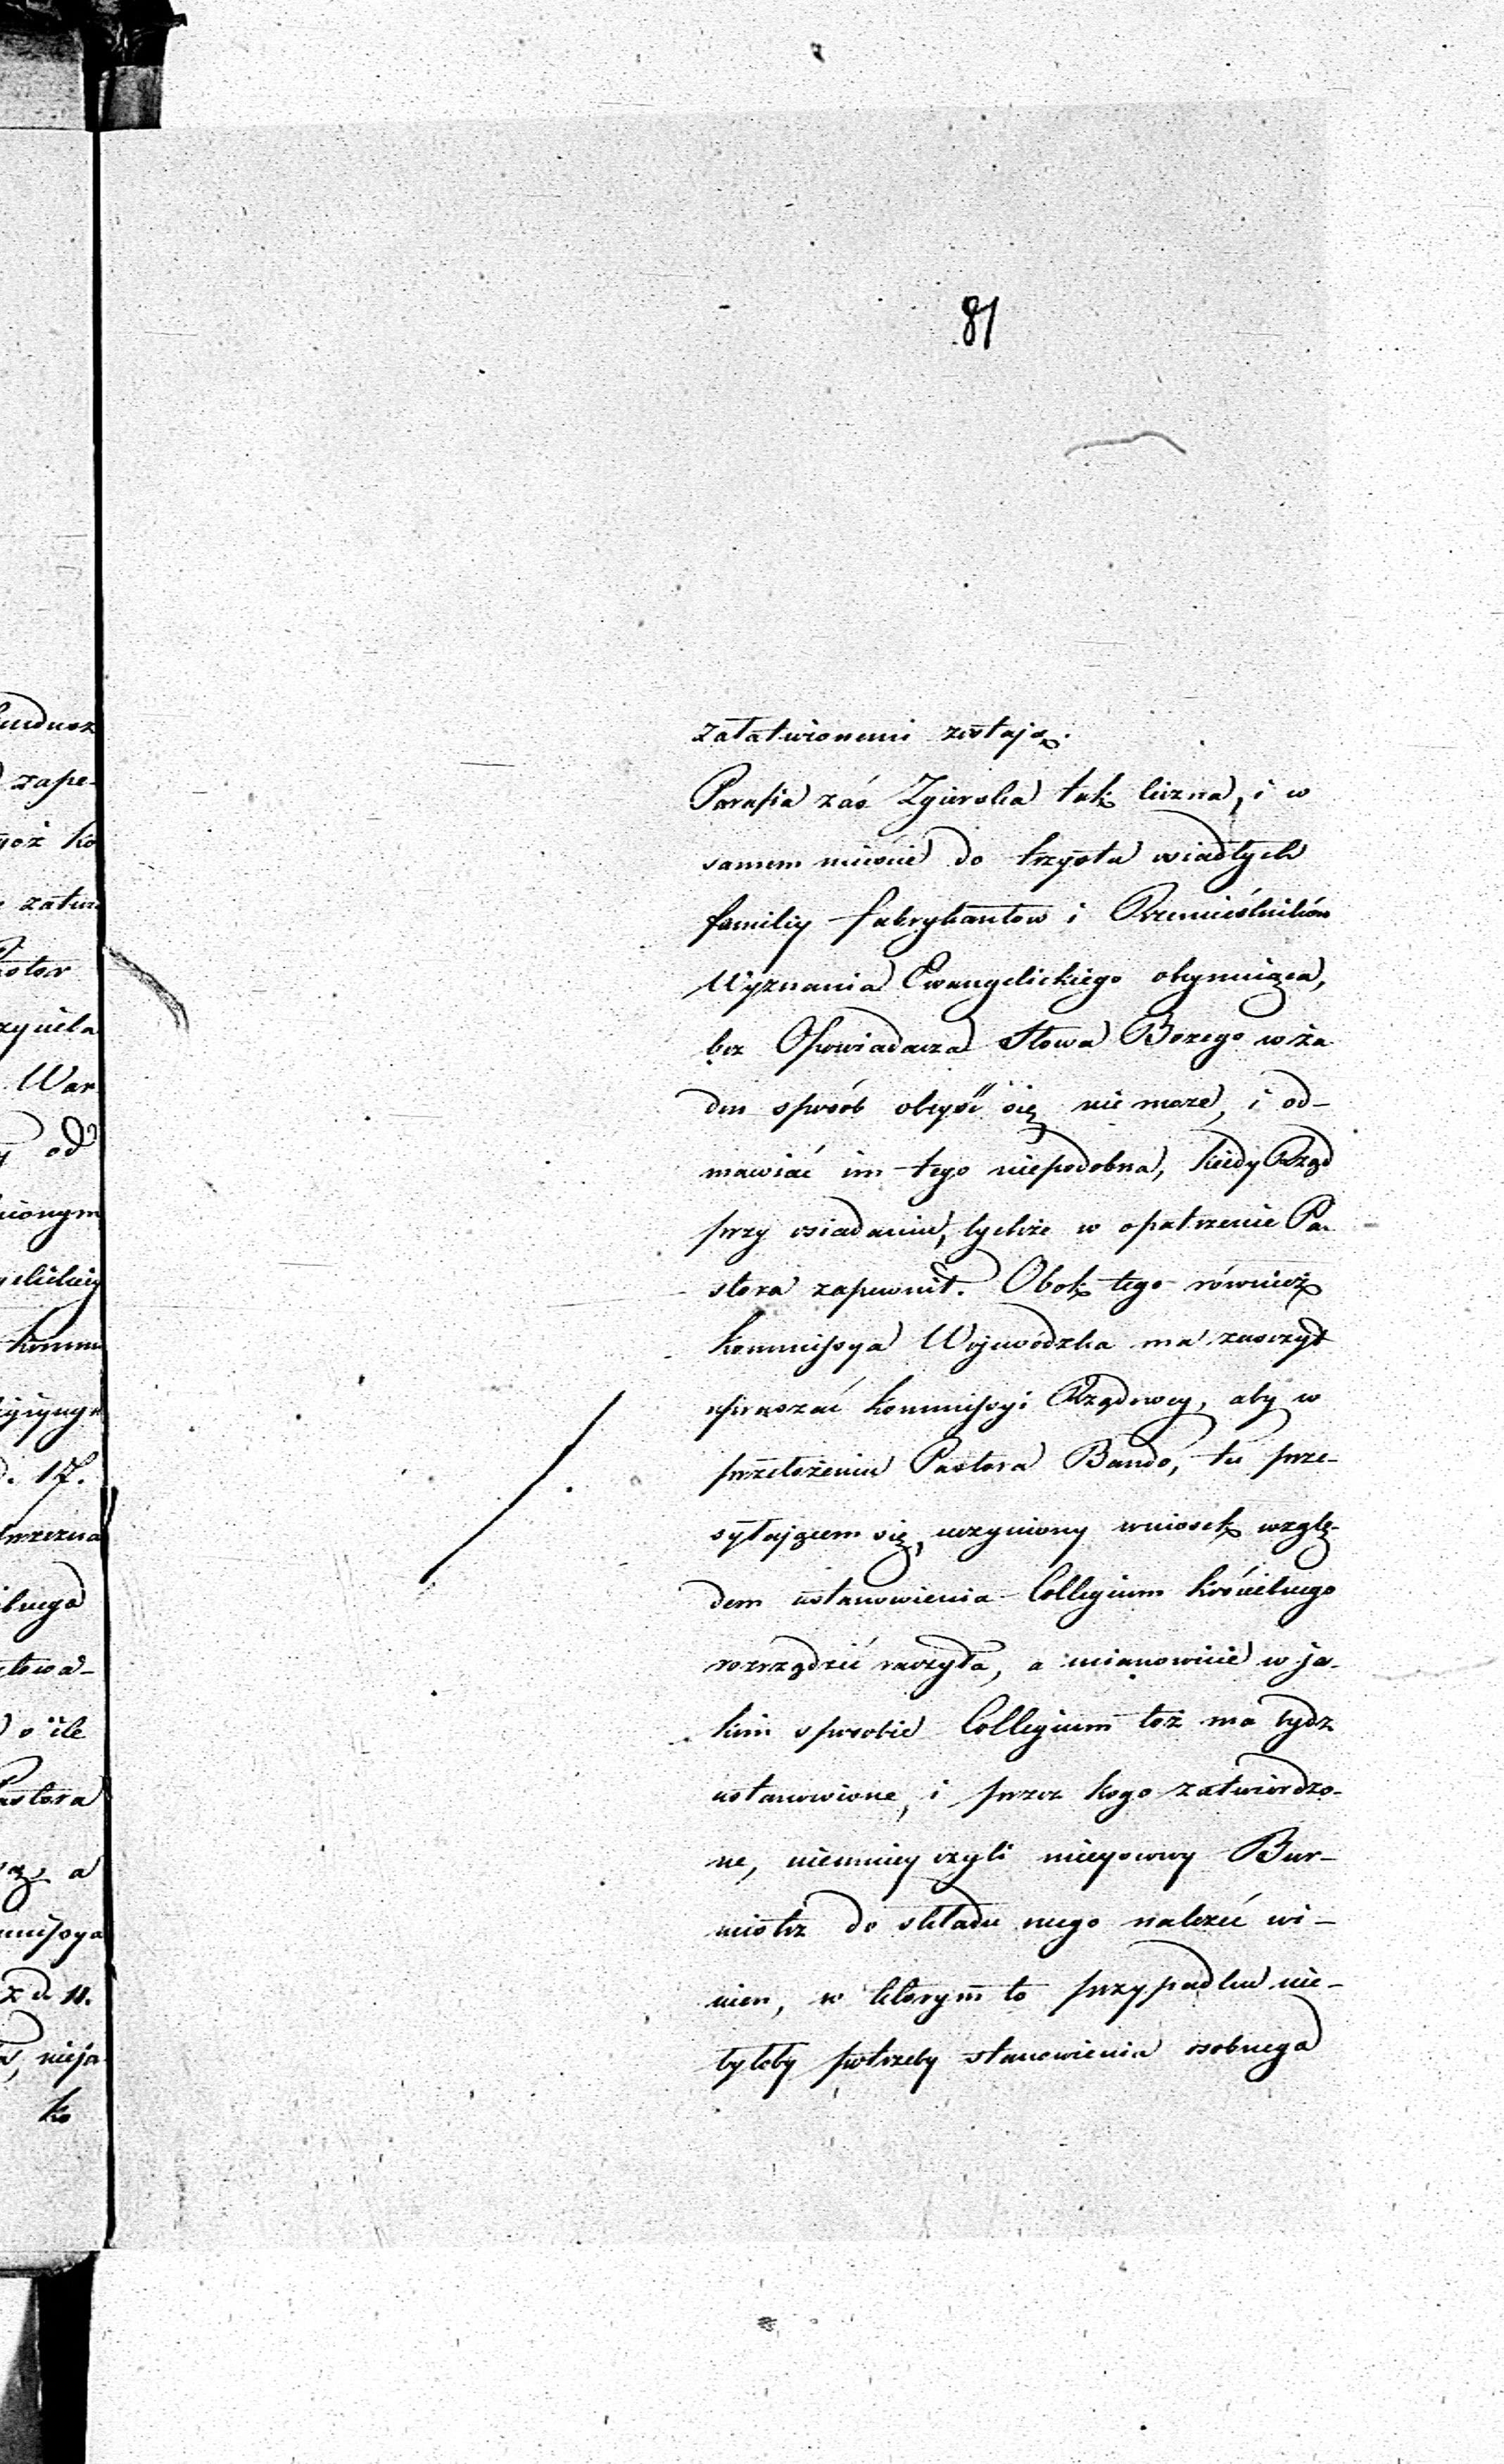 81
załatwionemi zostają.
Parafia zaś Zgierska tak liczna, i w
samem mieście do trzysta osiadłych
familiy fabrykantow i Rzemieślników
Wyznania Ewangelickiego obeymuiąca,
bez Opowiadacza Słowa Bozego w ża
den sposób obeyść się nie moze, i od-
mawiać im tego niepodobna, kiedy Rząd
przy osiadaniu, tychże w opatrzenie Pa-
stora zapewnił. Obok tego również
Kommissya Wojewódzka ma zaszczyt
upraszać Kommissyi Rządowey, aby w
przełożeniu Pastora Bando, tu prze-
syłaiącem się, uczyniony wniosek wzglę-
dem ustanowienia Collegium kościelnego
rozrządzić raczyła, a mianowicie w ja-
kim sposobie Collegium toż ma bydz
ustanowione, i przez kogo zatwierdzo-
ne, niemniey czyli mieyscowy Bur-
mistrz do składu niego należeć wi-
nien, w którym to przypadku nie-
byłoby potrzeby stanowienia osobnego
zape-
Pastor
War
od
. 17.
o ile
a
nieja
ko